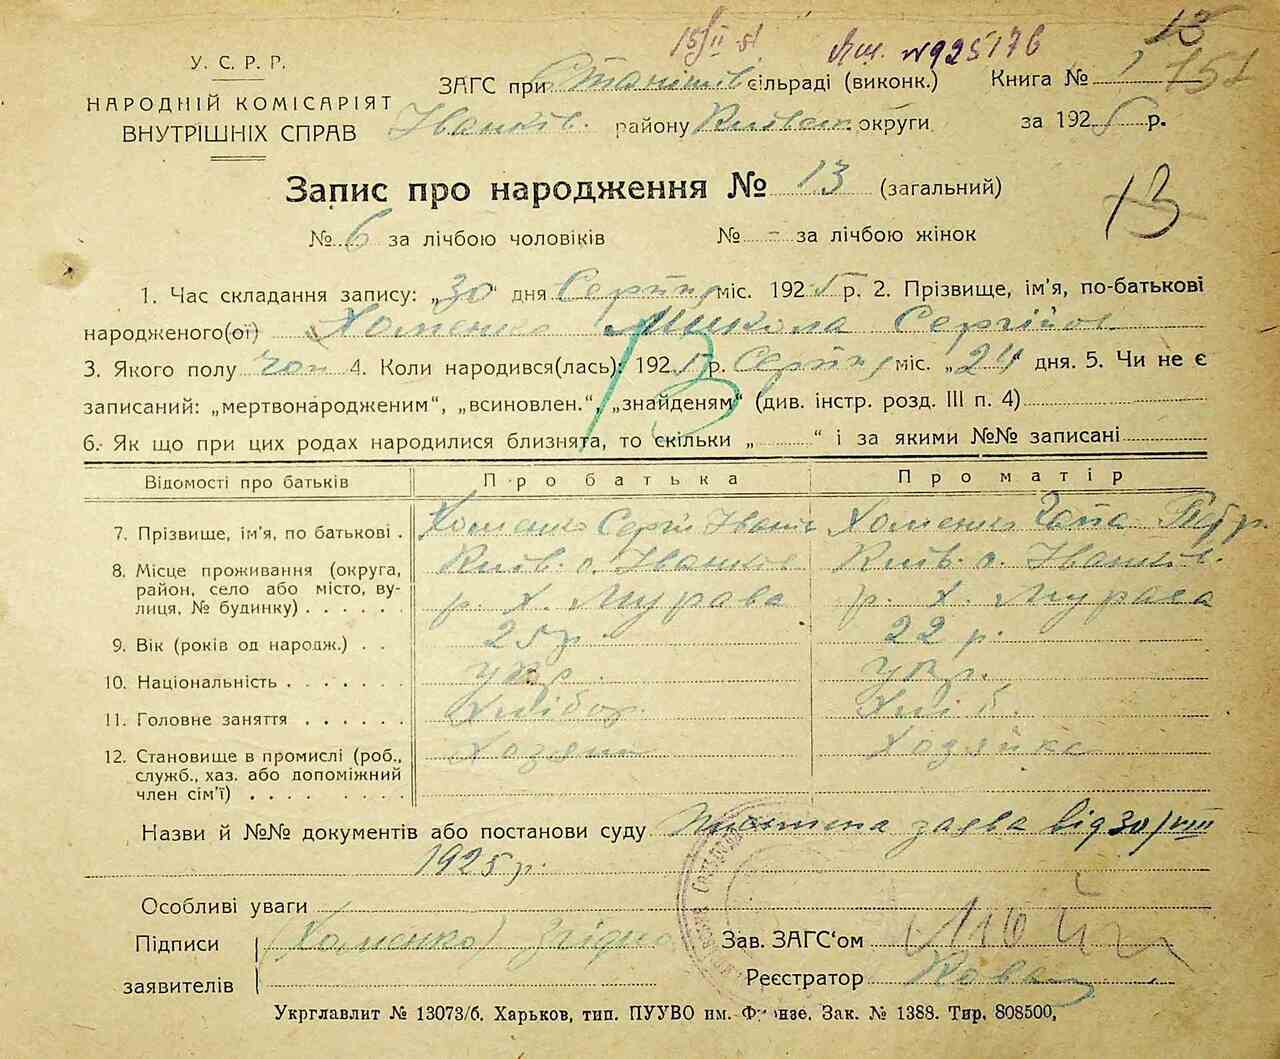 15/II 51 № 925176 13
751
У. С. Р. Р.
НАРОДНІЙ КОМІСАРІЯТ
ВНУТРІШНІХ СПРАВ
ЗАГС при сільраді (виконк.) Книга № 1
Іванків. району Київськ. округи за 1925 р.
Запис про народження № 13 (загальний)
13
№ 6 за лічбою чоловіків № - за лічбою жінок
1. Час складання запису: „30" дня Серпня міс. 1925 р. 2. Прізвище, ім'я, по-батькові
народженого(ої) Хоменко Микола Сергійов.
3. Якого полу чол 4. Коли народився(лась): 192 р. Серпня міс. „24" дня. 5. Чи не є
записаний: „мертвонародженим“, „всиновлен.“, „знайденям“ (див. інстр. розд. III п. 4)
13
6. Як що при цих родах народилися близнята, то скільки „ “ і за якими №№ записані
Відомості про батьків Про батька Про матір
7. Прізвище, ім'я, по батькові . Хоменко Сергій Іванов Хоменко Петр.
8. Місце проживання (округа, Київ. о. Іванків Київ. о. Іванків.
район, село або місто, ву-
лиця, № будинку) . . . . . р. х. Мурава р. х. Мурава
9. Вік (років од народж.) . . 25 р. 22 р.
10. Національність . . . . . . . укр. укр.
11. Головне заняття . . . . . . Хлібор. Хліб.
12. Становище в промислі (роб., Хозяин Хозяйка
служб., хаз. або допоміжний
член сім'ї) . . . . . . . .
Назви й №№ документів або постанови суду Письмена заява від 30/VIII
1925 р.
Особливі уваги
Підписи Хоменко Зав. ЗАГС‘ом
заявителів Реєстратор
Укрглавлит № 13073/б. Харьков, тип. ПУУВО им. Фрунзе. Зак. № 1388. Тир. 808500,